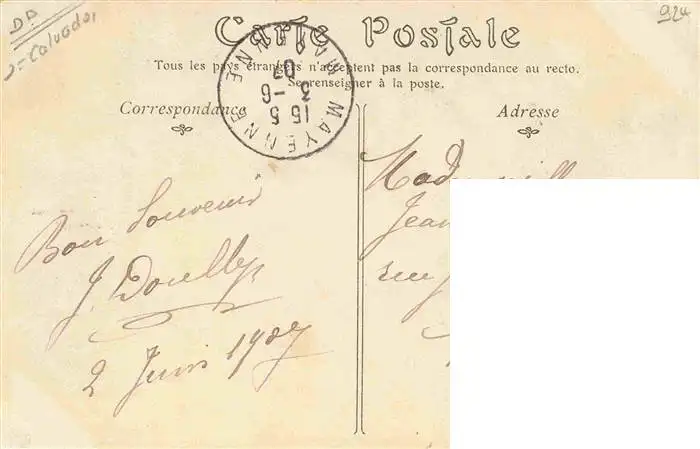 DD
Calvados
924
Carte Postale
Tous les pays étrangers n'acceptent pas la correspondance au recto.
Se renseigner à la poste.
Correspondance
MAYENNE MAYENNE
15 5
3 -6
07
Bon Souvenir
J. Douillys
2 Juin 1907
Adresse
Jean
rue